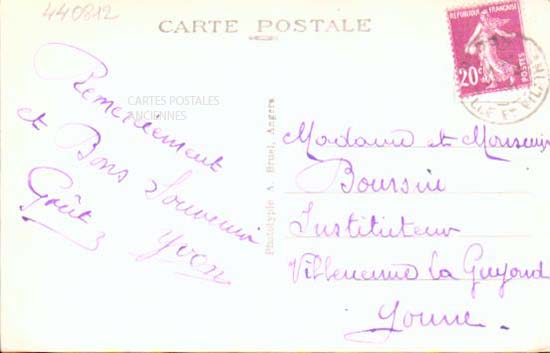 440812
CARTE POSTALE
REPUBLIQUE FRANÇAISE
20c
POSTES
CARTES POSTALES
ANCIENNES
Remerciement
et Bons Souvenir
Yvon
Phototypie A. Bruel, Angers
Madame et Monsieur
Boursin
Instituteur
Villeneuve la Guyard
Yonne